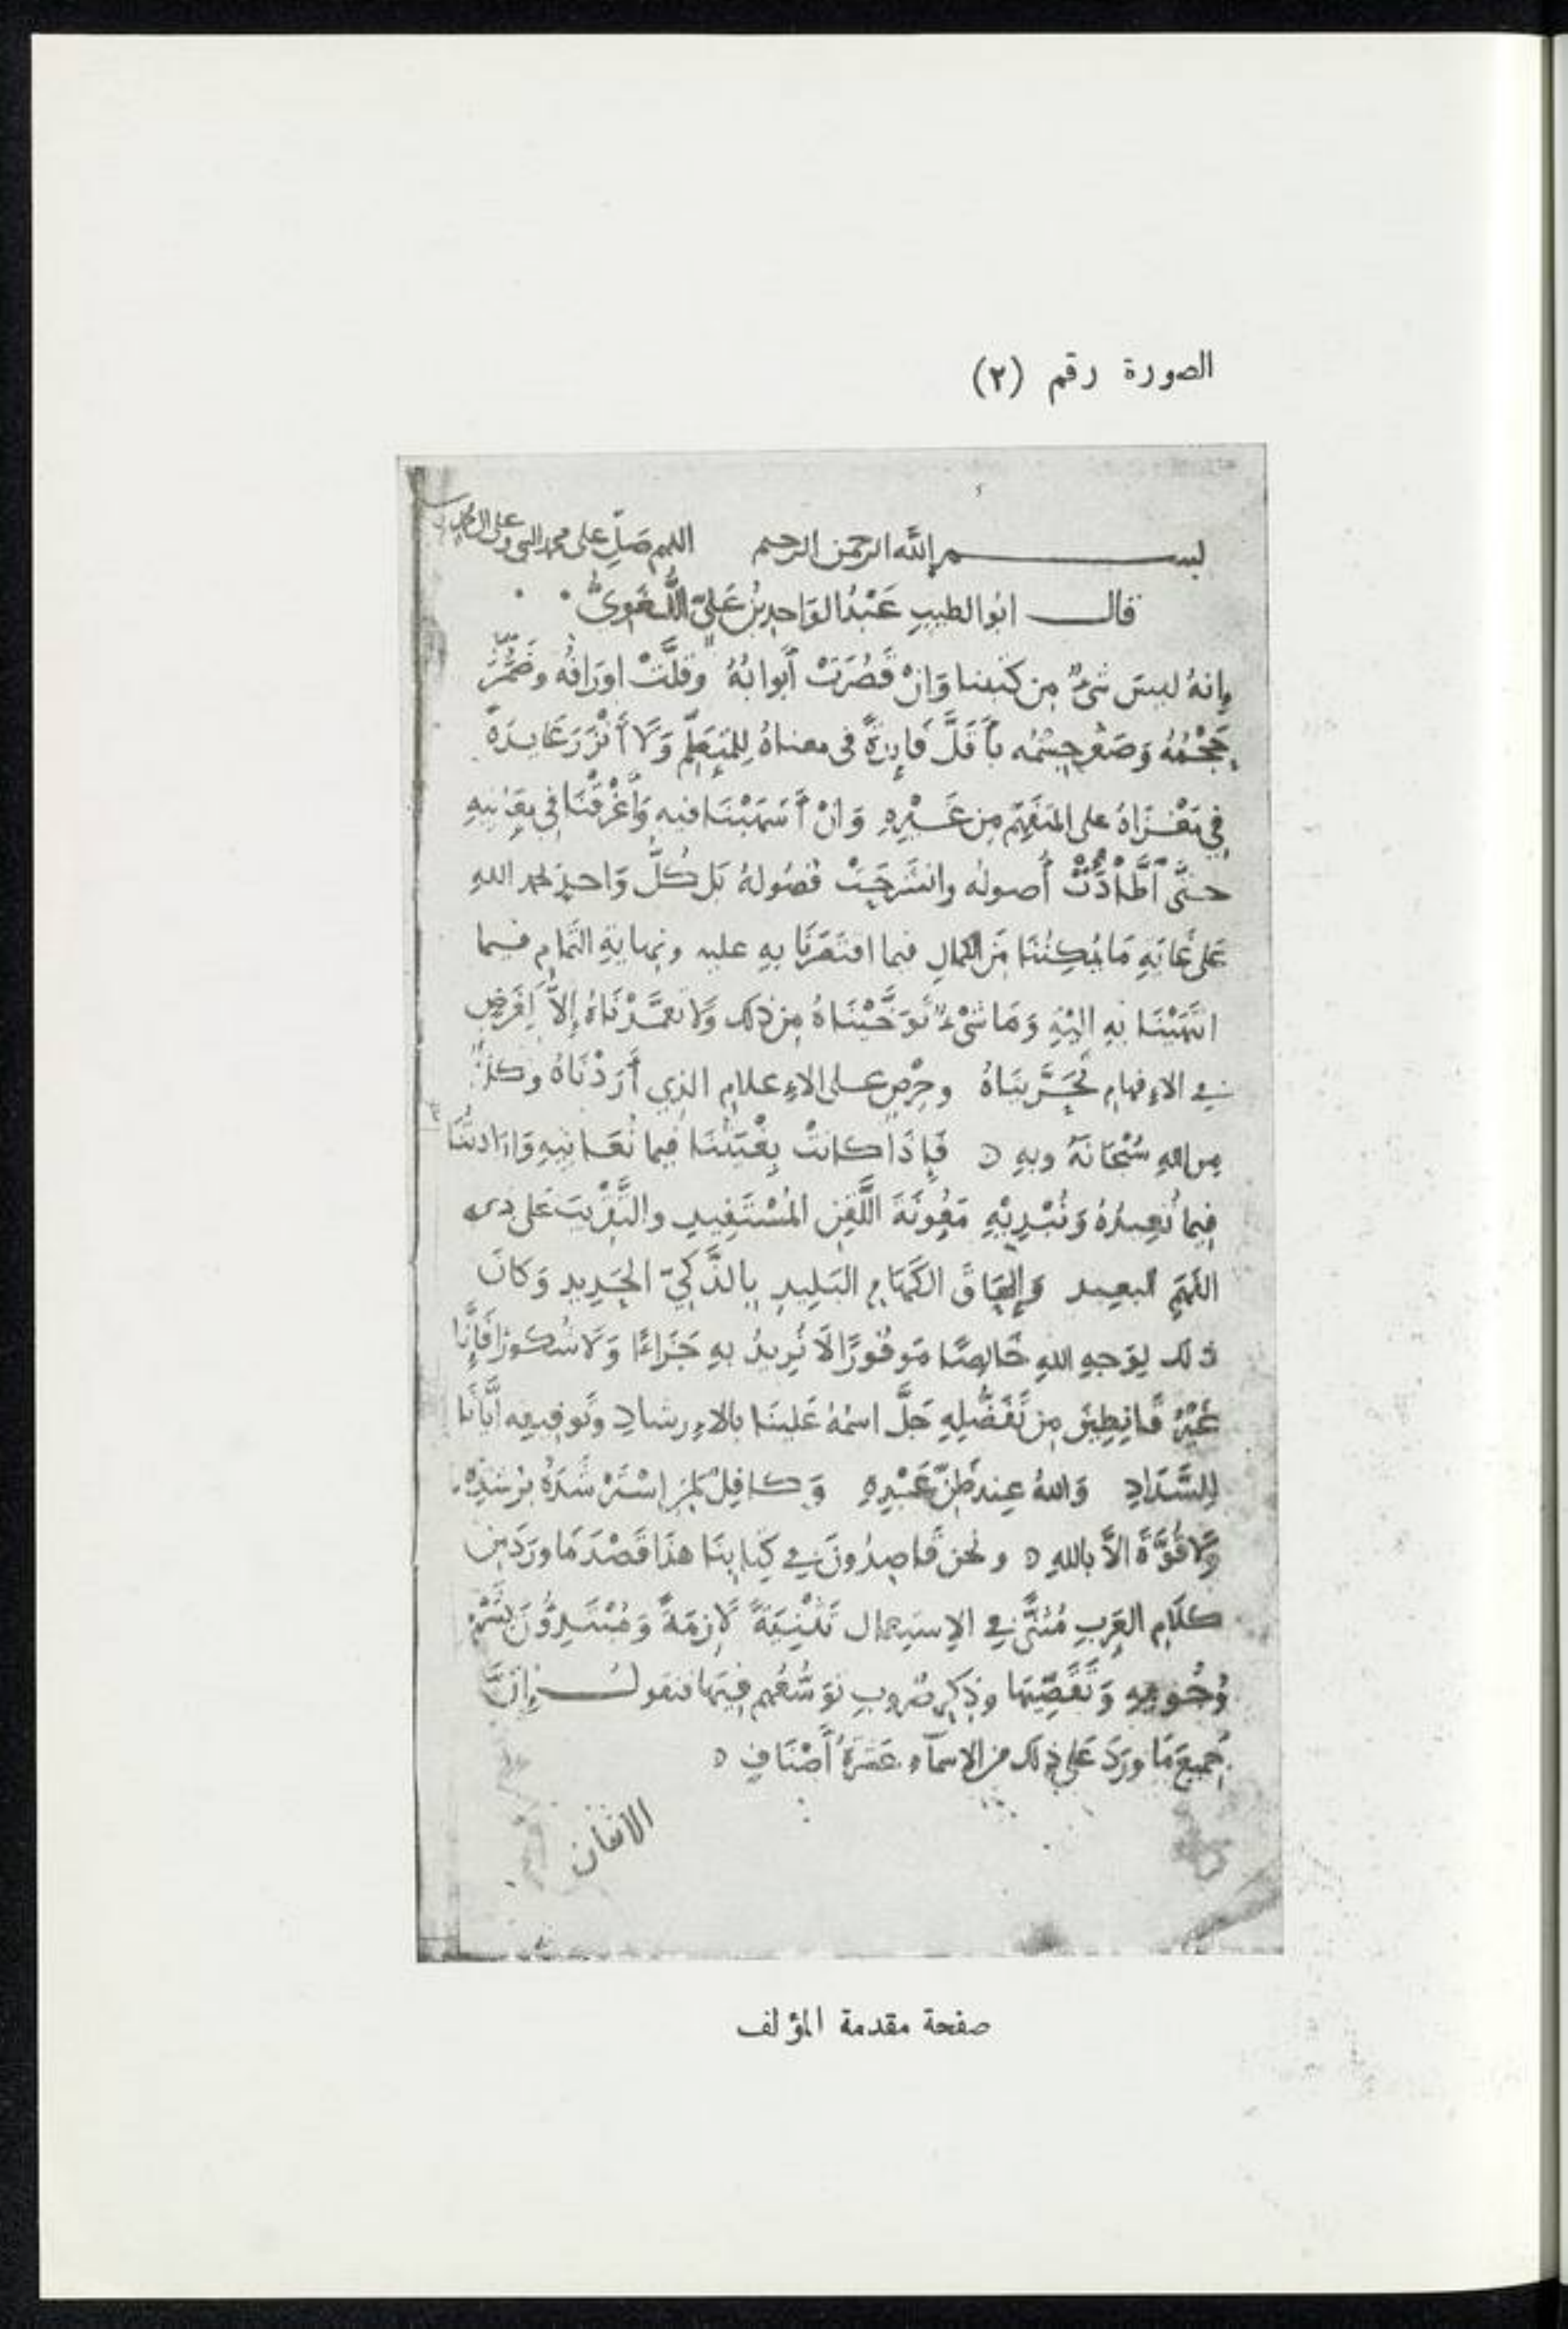 الصورة رقم (٢)
بسم الله الرحمن الرحيم اللهم صل على محمد النبي وعلى ال محمد
قال ابو الطيب عَبْدُ الوَاحِدِ بْنُ عَلِيّ اللُّغَوِيُّ
إنهُ ليسَ شيءٌ مِن كتبنا وَانْ قَصُرَتْ أَبوابُهُ وَقَلَّتْ اورَاقُه وضَمُرَ
حَجْمُهُ وَصَغُر جِسْمُه بأَقَلَّ فَايِدَةً في معناهُ لِلمُتَعَلِّمِ وَلَا أَنْزَرَ عَايِدَةً
فِي مَغْزَاهُ على المتَفَهِّمِ مِن غَيْرِهِ وَانْ أَسْهَبْنَا فيهِ وَأَغْرَقْنَا فِي مَعَانِيهِ
حتَّى اطَّأَدَتْ أُصولُه وانشَرَحَتْ فُصُولُهُ بَل كُلُّ وَاحِدٍ بحمد اللهِ
عَلَى غَايَةِ مَا يُمكِنُنَا مِنَ الكمالِ فيما اقتَصَرنَا بِهِ عليه ونِهايَةِ التَّمامِ فيما
انتَهَيْنَا بِهِ اليْهِ وَمَا شَيْءٌ تَوَخَّيْنَاهُ مِن ذلك وَلَا تَعَمَّدْنَاهُ إلاَّ لِغَرَضٍ
في الاءِفهامِ تَحَرَّينَاهُ وحِرْصٍ على الاءِعلامِ الذِي أَرَدْنَاهُ وكلٌّ
مِن اللهِ سُبْحَانَهُ وبِهِ ٥ فَإِذَا كانتْ بِغْيَتُنَا فيما نُعَانِيهِ وَارَادتُنَا
فِيما نُعِيدُهُ وَنُبْدِيْهِ مَعُونَةَ اللَّقِنِ المُسْتَفِيدِ والتَّقْرِيبَ على ذي
الفَهَمِ البعيد وَإِلحَاقَ الكَهَامِ البَلِيدِ بِالذَّكِيّ الحَدِيدِ وَكانَ
ذلك لِوَجهِ اللهِ خَالِصًا مَوفُورًا لَا نُرِيدُ بِهِ جَزَاءًا وَلَا شُكورًا فَإِنَّا
غَيْرُ قَانِطِينَ مِن تَفَضُّلِهِ جَلَّ اسمُهُ عَلينَا بالاءِرشادِ وتَوفِيقِه أيَّانَا
لِلسَّدَادِ وَاللهُ عِندَ ظَنِّ عَبْدِهِ وَكافِلٌ لِمَنِ اسْتَرْشَدَهُ بِرُشْدِهِ
وَلَا قُوَّةَ الاَّ باللهِ ٥ ونحن قَاصِدُونَ في كِتابِنَا هذَا قَصْدَ مَا وَرَدَ مِن
كلَامِ العَرَبِ مُثَنًّى في الاِستِعمالِ تَثْنِيَةً لَازِمَةً وَمُبْتَدِءُونَ بِشَرْحِ
وُجُوهِهِ وَتَقَصِّيهَا وذِكرِ ضُروبِ تَوَسُّعِهِم فِيهَا فنقولُ إِنَّ
جَمِيعَ مَا وَرَدَ عَلى ذلك من الاسمآءِ عَشَرَةُ أَصْنَافٍ ٥
الاثنان
صفحة مقدمة المؤلف